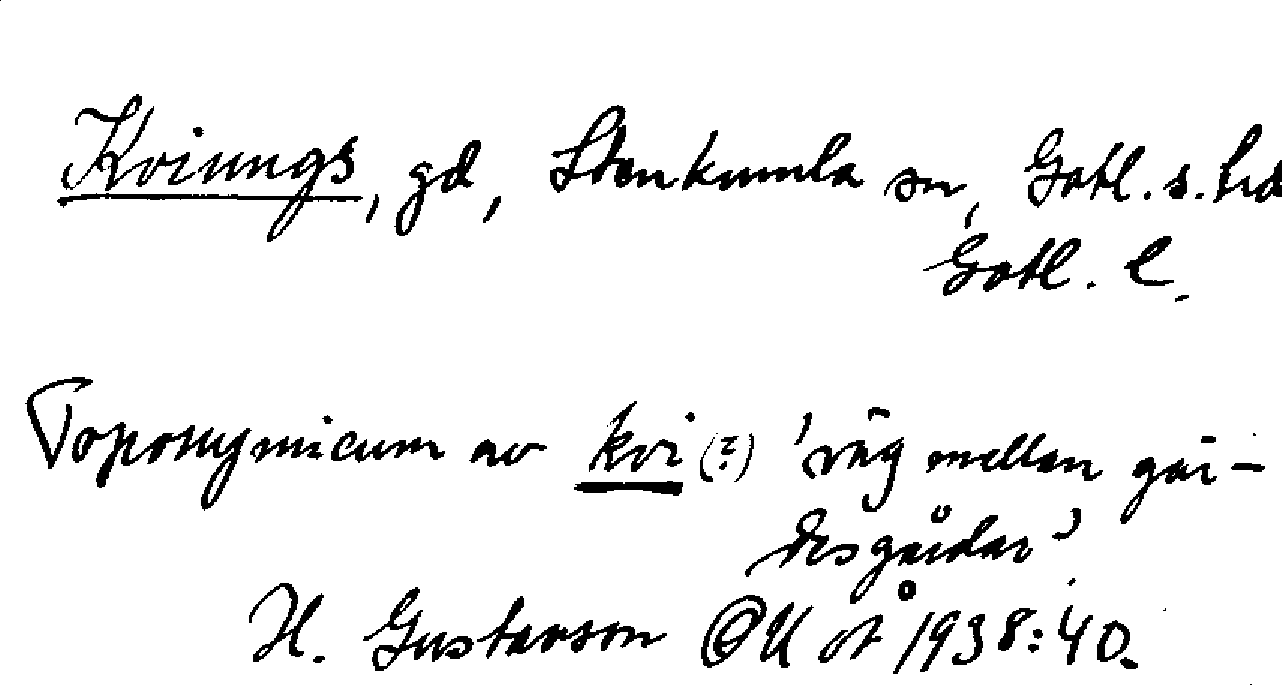 Kviungs, gd, Stenkumla sn, Gotl. s. hd
Gotl. l.
Toponymicum av kvi (?) 'väg mellan gär-
desgårdar'
H. Gustavson OUÅ 1938:40.